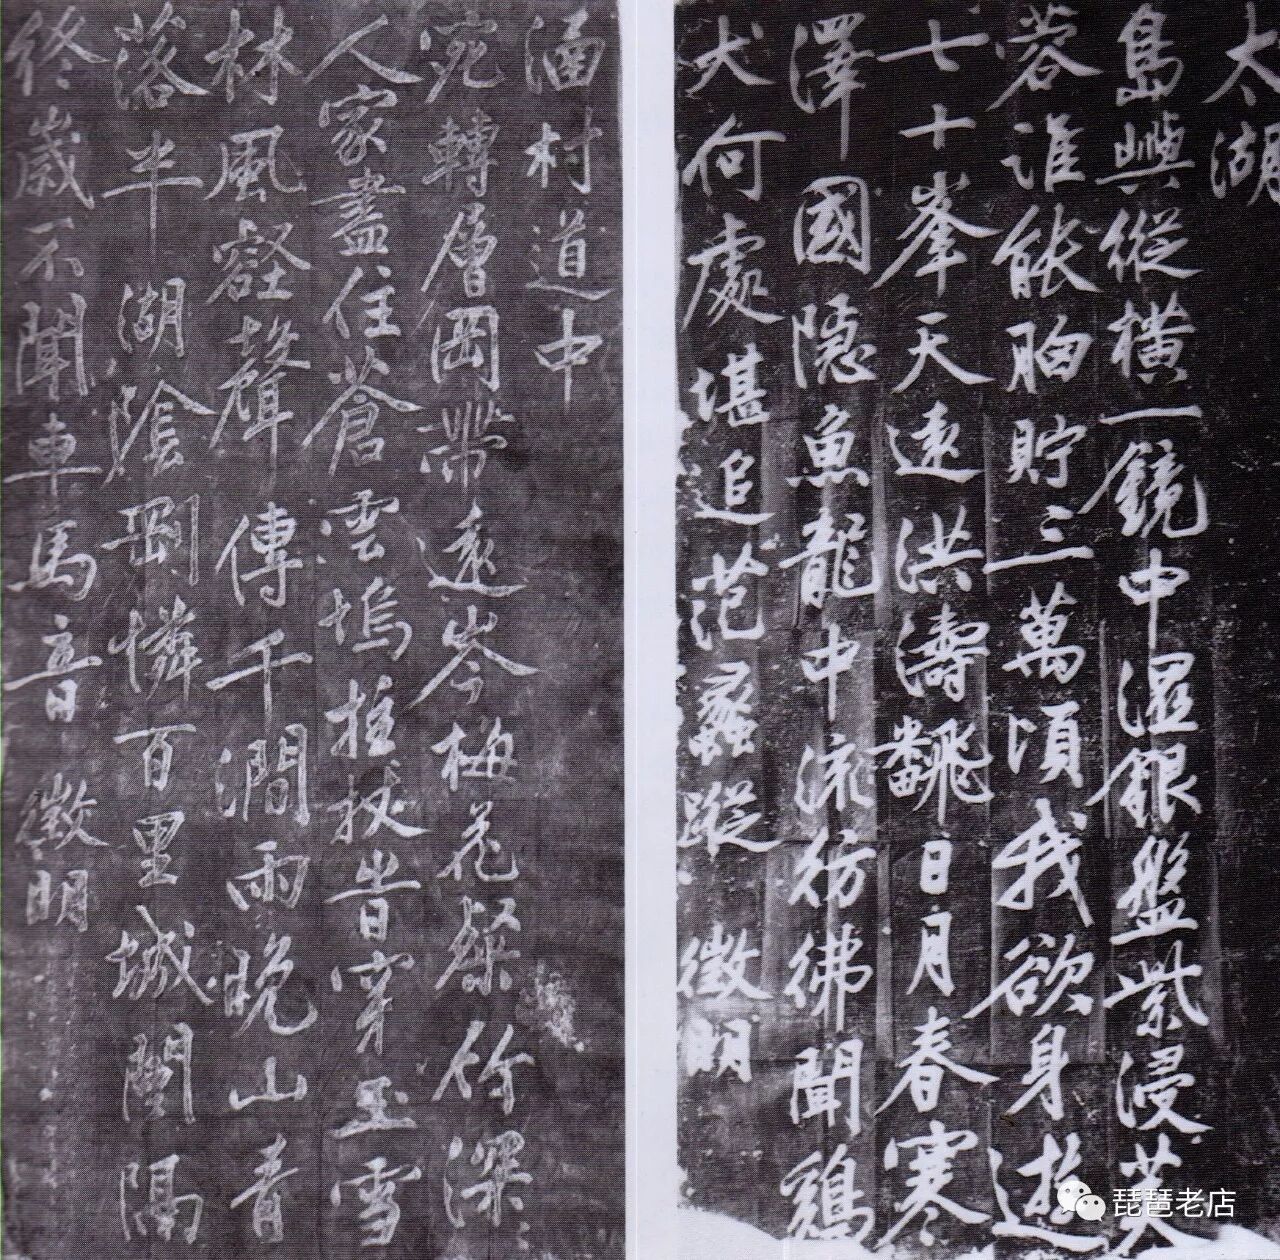 太湖
島嶼縱橫一鏡中濕銀盤紫浸芙
蓉誰能胸貯三萬頃我欲身遊
七十峯天遠洪濤飜日月春寒
澤國隱魚龍中流彷彿聞鷄
犬何處堪追范蠡蹤 徵明
涵村道中
宛轉層岡帶遠岑梅花粲〻竹深〻
人家盡住蒼雲塢拄杖旹穿玉雪
林風壑聲傳千澗雨晚山青
落半湖陰剛憐百里城闉隔
終歲不聞車馬音 徵明
琵琶老店